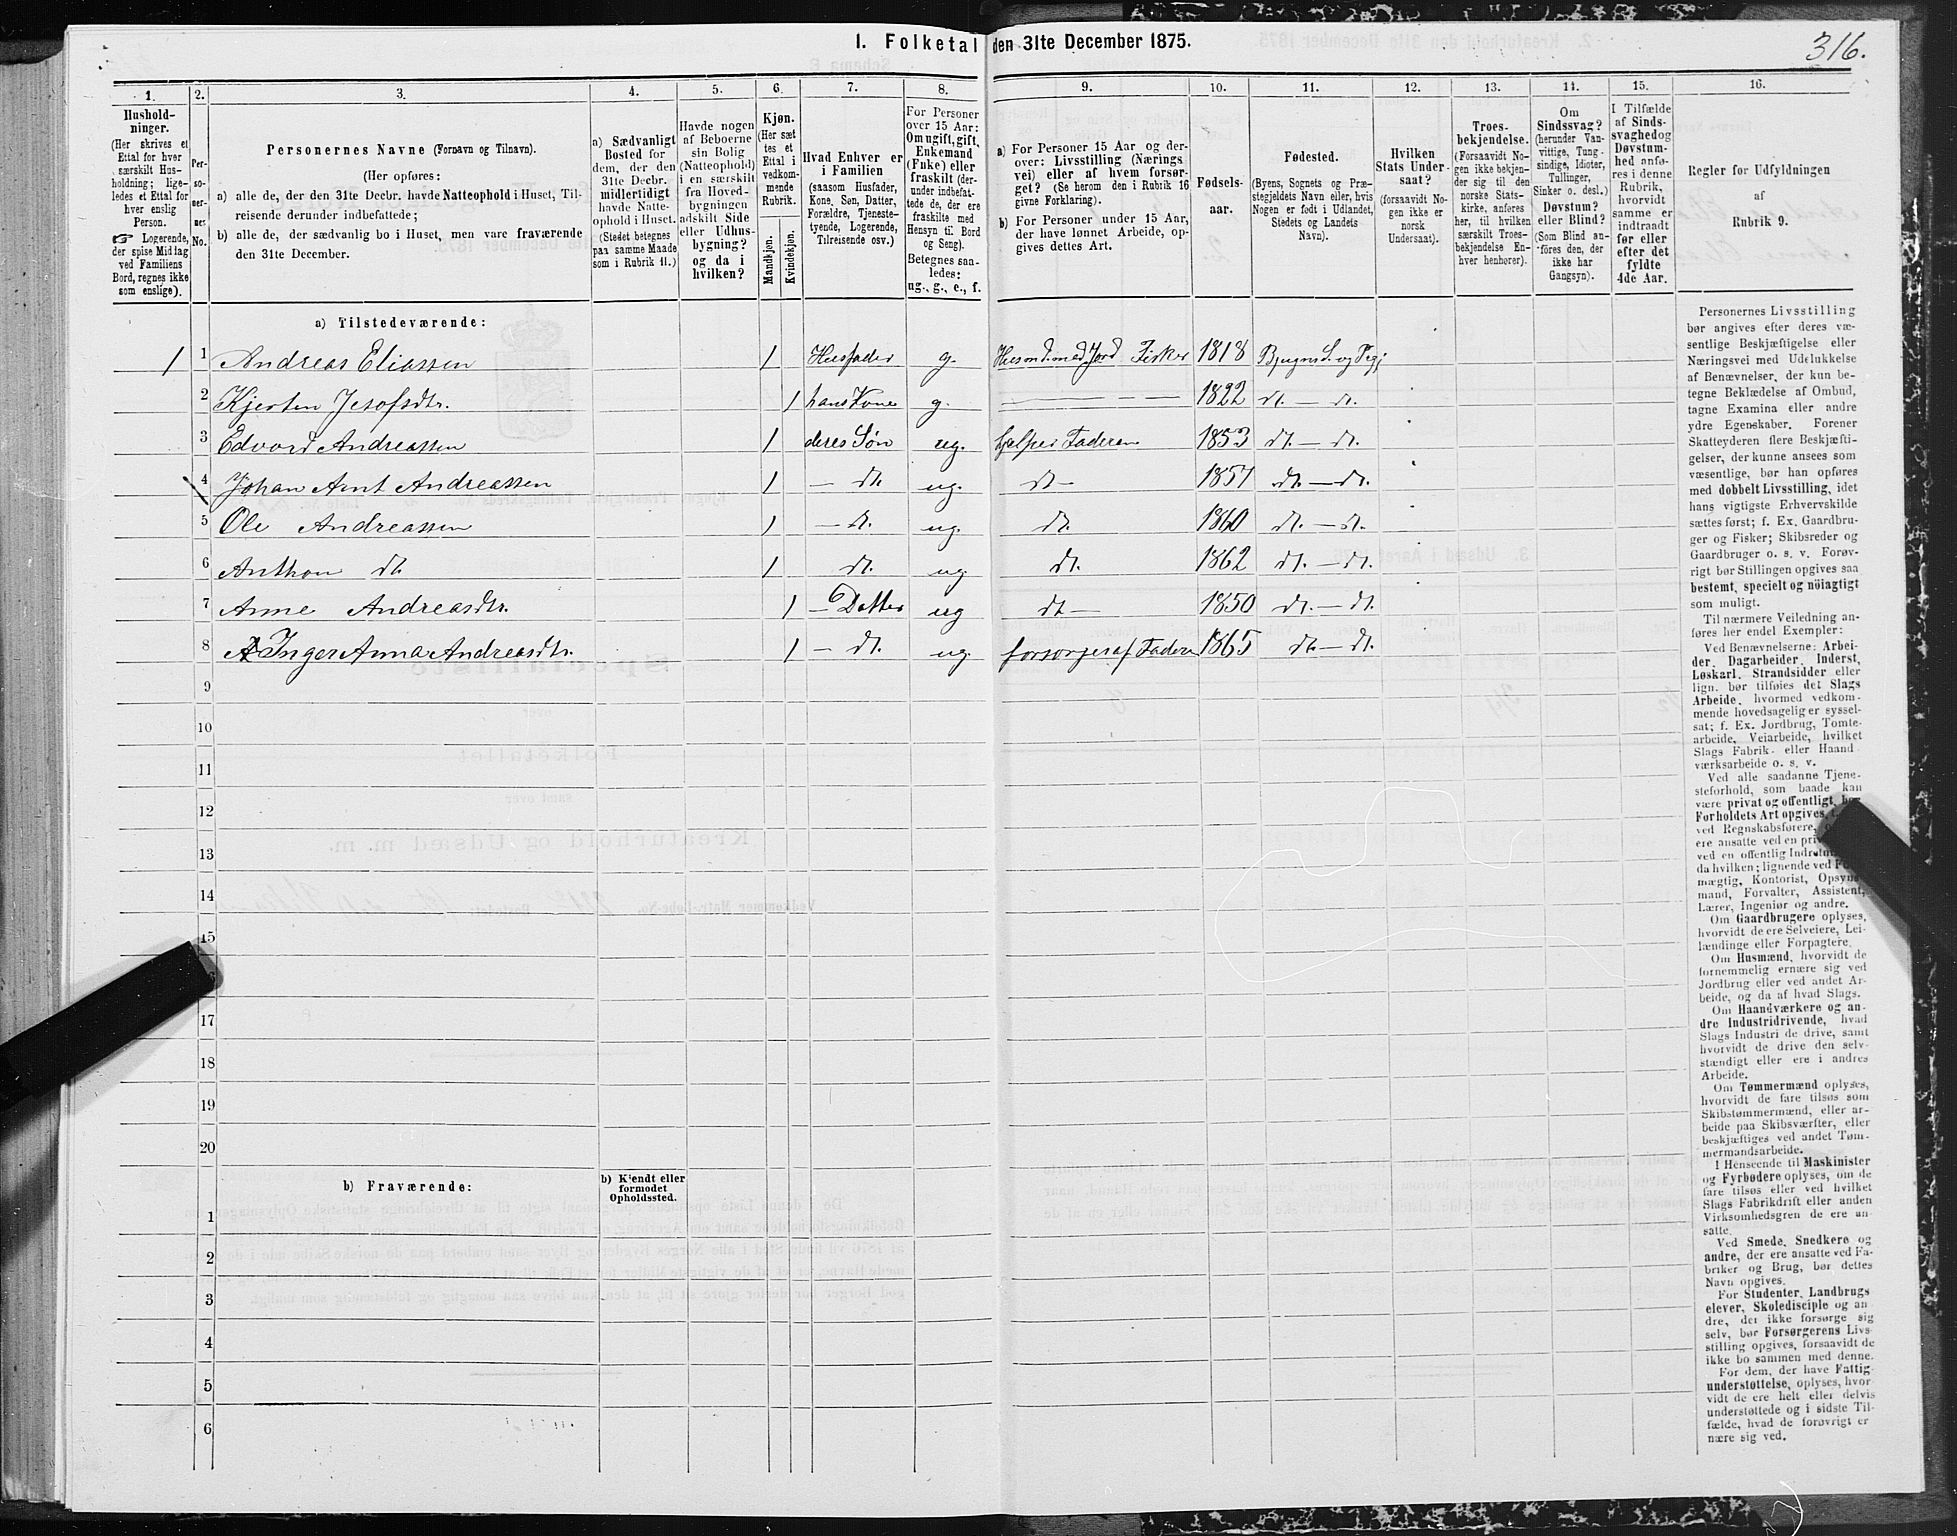 I. Folketal den 31te December 1875.
316.
1.
Hushold-
ninger.
(Her skrives et
Ettal for hver
særskilt Hus-
holdning; lige-
ledes et Ettal for
hver enslig
Person.
☞ Logerende,
der spise Middag
ved Familiens
Bord, regnes ikke
som enslige).
2.
Per-
so-
ner-
nes
No.
3.
Personernes Navne (Fornavn og Tilnavn).
(Her opføres:
a) alle de, der den 31te Decbr. havde Natteophold i Huset, Til-
reisende derunder indbefattede;
b) alle de, der sædvanlig bo i Huset, men vare fraværende
den 31te December.
4.
a) Sædvanligt
Bosted for
dem, der den
31te Decbr.
midlertidigt
havde Natte-
ophold i Huset.
(Stedet betegnes
paa samme Maade
som i Rubrik 11.)
5.
Havde nogen
af Beboerne
sin Bolig
(Natteophold)
i en særskilt
fra Hoved-
bygningen
adskilt Side
eller Udhus-
bygning?
og da i
hvilken?
6.
Kjøn.
(Her sæt
tes et
Ettal i
vedkom-
mende
Rubrik.
Mandkjøn.
Kvindekjøn.
7.
Hvad Enhver er
i Familien
(saasom Husfader,
Kone, Søn, Datter,
Forældre, Tjeneste-
tyende, Logerende,
Tilreisende osv.)
8.
For Personer
over 15 Aar:
Om ugift, gift,
Enkemand
(Enke) eller
fraskilt (der-
under indbefat-
tede de, der ere
fraskilte med
Hensyn til Bord
og Seng).
Betegnes saa-
ledes:
ug., g., e., f.
9.
a) For Personer 15 Aar og der-
over: Livsstilling (Nærings
vei) eller af hvem forsør-
get? (Se herom den i Rubrik 16
givne Forklaring).
b) For Personer under 15 Aar,
der have lønnet Arbeide, op-
gives dettes Art.
10.
Fødsels-
aar.
11.
Fødested.
(Byens, Sognets og Præ-
stegjeldets Navn eller, hvis
Nogen er født i Udlandet,
Stedets og Landets
Navn).
12.
Hvilken
Stats Under-
saat?
(forsaavidt No-
gen ikke er
norsk
Undersaat).
13.
Troes-
bekjendelse.
(Forsaavidt No-
gen ikke bekjen-
der sig til den
norske Stats-
kirke, anføres
her, til hvilken
særskilt Troes-
bekjendelse En-
hver henhører).
14.
Om
Sindssvag?
(herunder Van-
vittige, Tung-
sindige, Idioter,
Tullinger,
Sinker o. desl.)
Døvstum?
eller Blind?
(Som Blind an-
føres den, der
ikke har
Gangsyn).
15.
I Tilfælde
af Sinds-
svaghed og
Døvstum-
hed anfø-
res i denne
Rubrik,
hvorvidt
samme er
indtraadt
før eller
efter det
fyldte
4de Aar.
16.
Regler for Udfyldningen
af
Rubrik 9.
a) Tilstedeværende:
1 1 Andreas Eliassen 1 Husfader g. Husmd. med Jord Fisker 1818 Bjugns S. og Pgj
2 Kjersten Jesofsdtr. 1 hans Kone g. — — — 1822 dt. — dt.
3 Edvard Andreassen 1 deres Søn ug. hjelper Faderen 1853 dt. — dt.
4 Johan Arnt Andreassen 1 — dt. ug. dt — 1857 dt. — dt.
5 Ole Andreassen 1 — dt. ug. dt. 1860 dt. — dt.
6 Anthon dt. 1 dt. ug. dt. 1862 dt. — dt.
7 Anne Andreasdtr. 1 — Datter ug dt — 1850 dt. — dt.
8 Inger Anna Andreasdtr. 1 — dt. ug. forsørges af Faderen 1865 dt. — dt.
9
10
11
12
13
14
15
17
18
19
20
b) Fraværende:
b) Kjendt eller
formodet
Opholdssted.
1
2
3
4
5
6
Personernes Livsstilling
bør angives efter deres væ-
sentlige Beskjæftigelse eller
Næringsvei med Udelukkelse
af Benævnelser, der kun be-
tegne Beklædelse af Ombud,
tagne Examina eller andre
ydre Egenskaber. Forener
Skatteyderen flere Beskjæfti-
gelser, der kunne ansees som
væsentlige, bør han opføres
med dobbelt Livsstilling, idet
hans vigtigste Erhvervskilde
sættes først; f. Ex. Gaardbru-
ger og Fisker; Skibsreder og
Gaardbruger o. s. v. Forøv-
rigt bør Stillingen opgives saa
bestemt, specielt og nöiagtigt
som muligt.
Til nærmere Veiledning an-
føres her endel Exempler:
Ved Benævnelserne: Arbei-
der, Dagarbeider, Inderst,
Løskarl, Strandsidder eller
lign. bør tilføies det Slags
Arbeide, hvormed vedkom-
mende hovedsagelig er syssel-
sat; f. Ex. Jordbrug, Tomte-
arbeide, Veiarbeide, hvilket
Slags Fabrik- eller Haand-
værksarbeide o. s. v.
Ved alle saadanne Tjene-
steforhold, som baade kan
være privat og offentligt,
Forholdets Art opgives,
ved Regnskabsførere,
ere ansatte ved en
ved en offentlig
da hvilken; lignende ved
mægtig, Kontorist, Opsyns-
mand, Forvalter, Assistent,
Lærer, Ingeniør og andre.
Om Gaardbrugere oplyses,
hvorvidt de ere Selveiere, Lei-
lændinge eller Forpagtere.
Om Husmænd, hvorvidt de
fornemmelig ernære sig ved
Jordbrug eller ved andet Ar-
beide, og da af hvad Slags.
Om Haandværkere og an-
dre Industridrivende, hvad
Slags Industri de drive, samt
hvorvidt de drive den selv-
stændigt eller ere i andres
Arbeide.
Om Tømmermænd oplyses,
hvorvidt de fare tilsøs som
Skibstømmermænd, eller ar-
beide paa Skibsværfter, eller
beskjæftiges ved andet Tøm-
mermandsarbeide.
I Henseende til Maskinister
og Fyrbødere oplyses, om de
fare tilsøs eller ved hvilket
Slags Fabrikdrift eller anden
Virksomhedsgren de ere an-
satte.
Ved Smede, Snedkere og
andre, der ere ansatte ved Fa-
briker og Brug, bør dettes
Navn opgives.
For Studenter, Landbrugs
elever, Skoledisciple og an
dre, der ikke forsørge sig
selv, bør Forsørgerens Livs-
stilling opgives, forsaavidt de
ikke bo sammen med denne.
For dem, der have Fattig-
understøttelse, oplyses, hvor-
vidt de ere helt eller delvis
understøttede og i sidste Til-
fælde, hvad de forøvrigt er
nære sig ved.